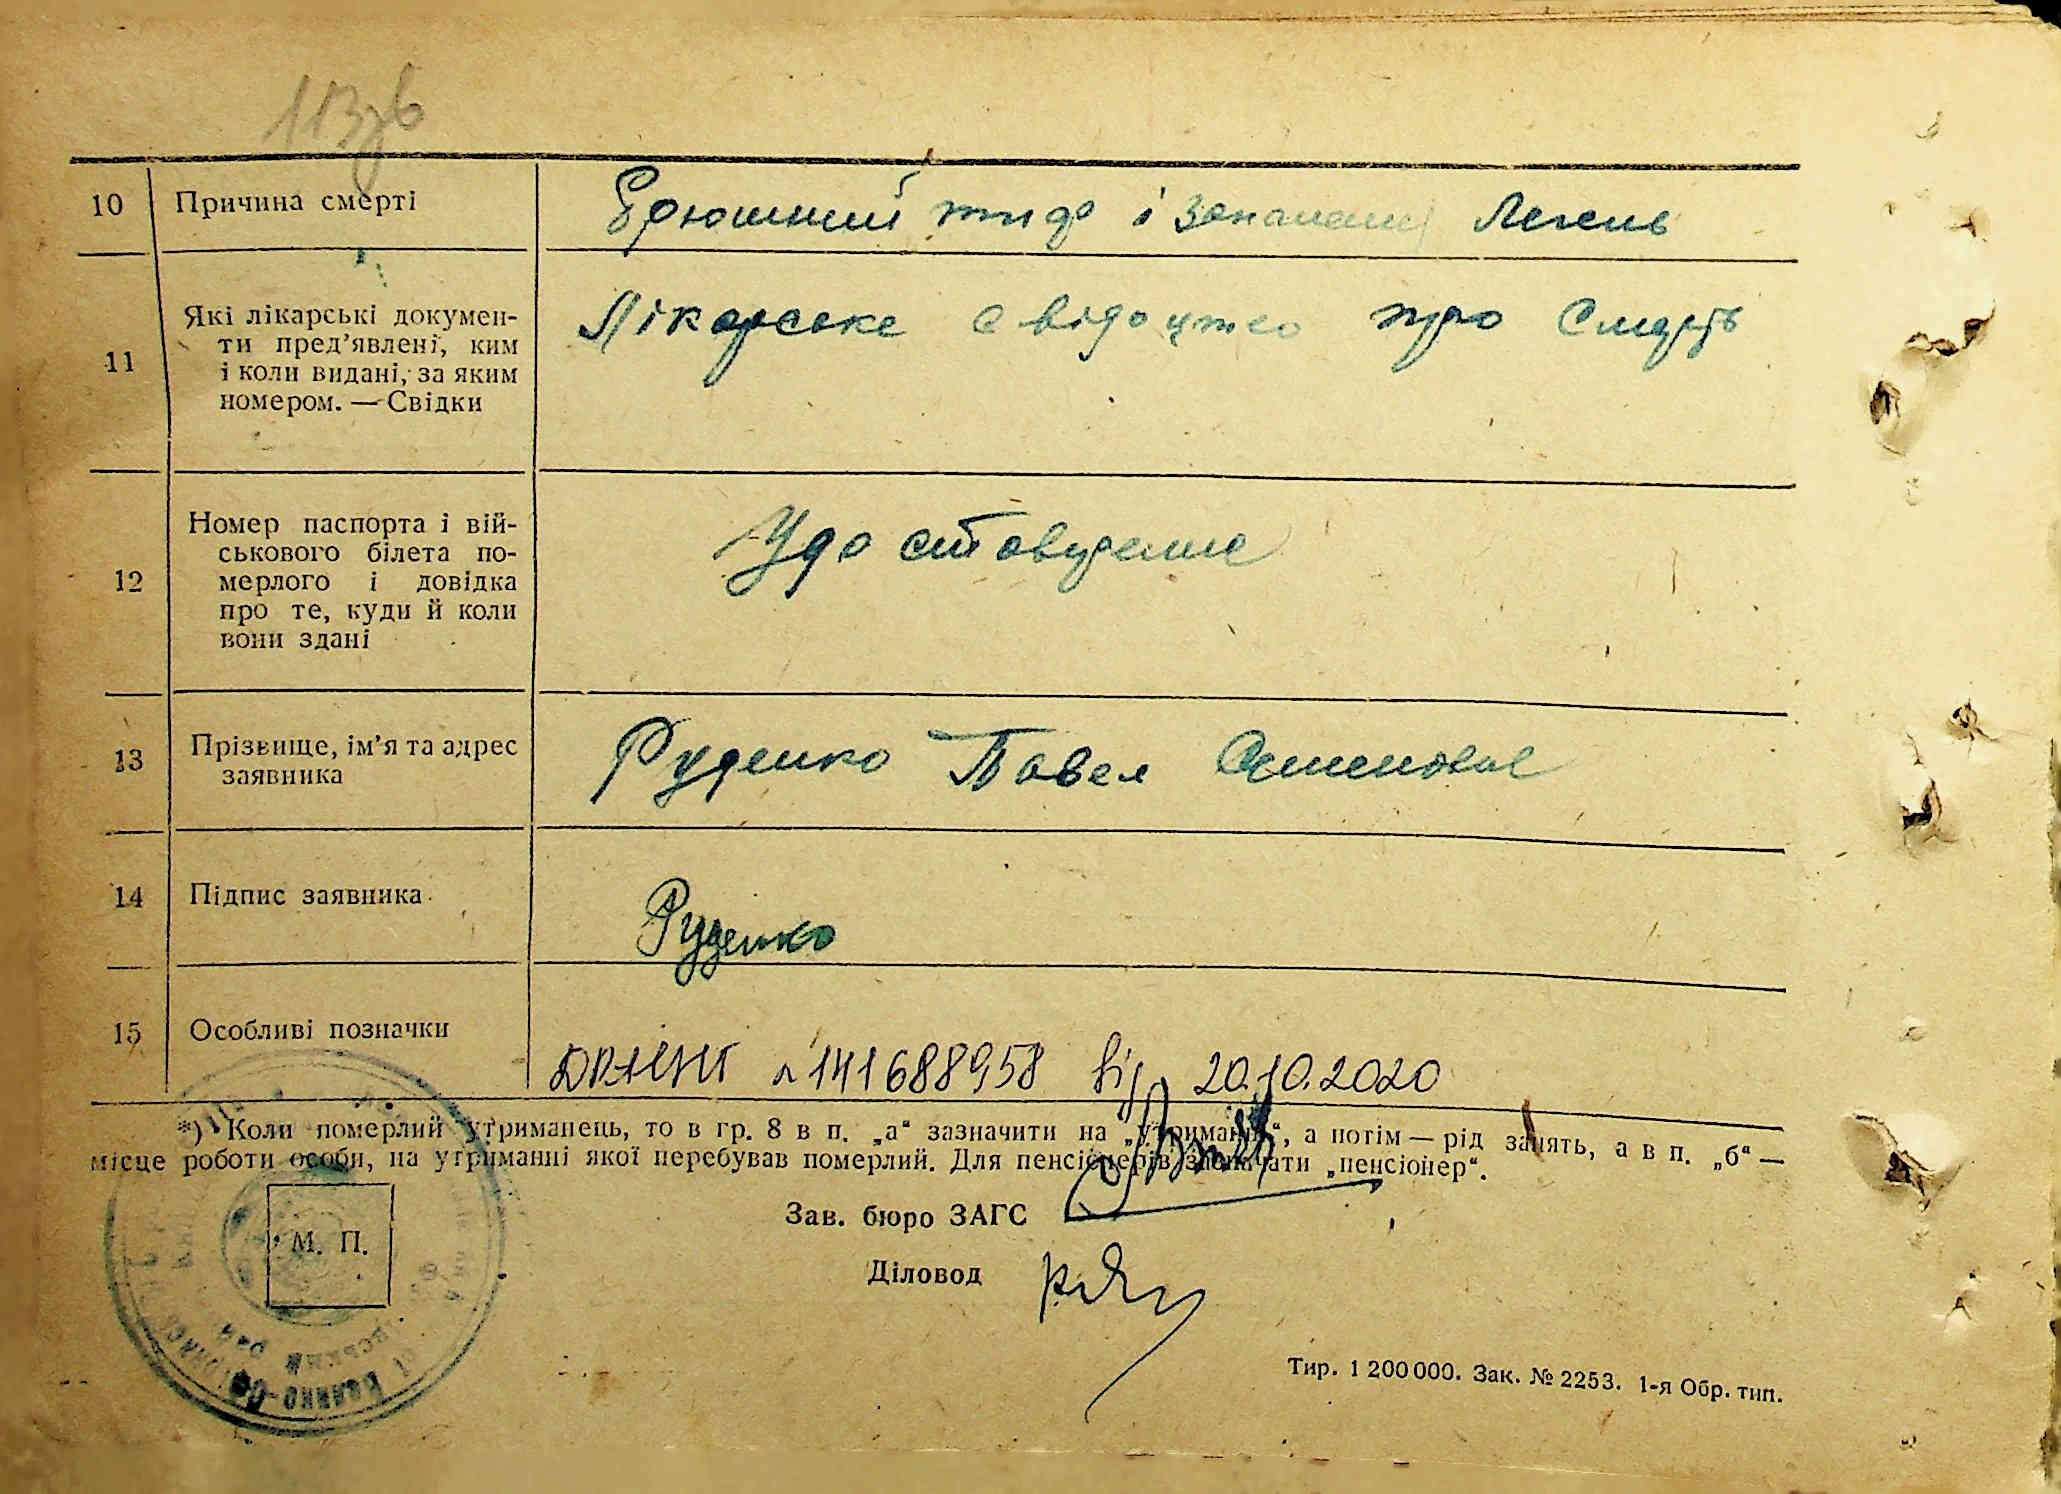 113зв
10 Причина смерті Брюшний тиф і запалення легень
11 Які лікарські докумен-
ти пред’явлені, ким
і коли видані, за яким
номером. — Свідки
Лікарське свідоцтво про смерть
12 Номер паспорта і вій-
ськового білета по-
мерлого і довідка
про те, куди й коли
вони здані
13 Прізвище, ім’я та адрес
заявника
Руденко Павел
14 Підпис заявника
Руденко
15 Особливі позначки
141688958 від 20.10.2020
*) Коли померлий утриманець, то в гр. 8 в п. „а“ зазначити на „утриманні“, а потім — рід занять, а в п. „б“ —
місце роботи особи, на утриманні якої перебував померлий. Для пенсіонерів зазначати „пенсіонер“.
Зав. бюро ЗАГС
М. П.
Діловод
Тир. 1 200 000. Зак. № 2253. 1-я Обр. тип.